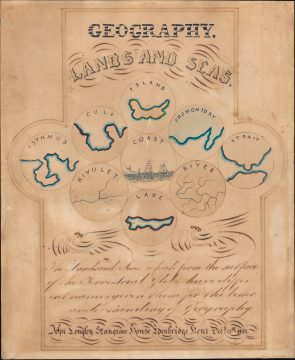 GEOGRAPHY.
LANDS AND SEAS.
ISLAND
GULF
PROMONTORY
ISTHMUS
COAST
STRAIT
RIVULET
RIVER
LAKE
The Lands and Seas which form the surface
of the Terrestrial Globe have differ-
ent names given them for the better
understanding Geography
John Longley Hangrove House Tonbridge Kent Dec